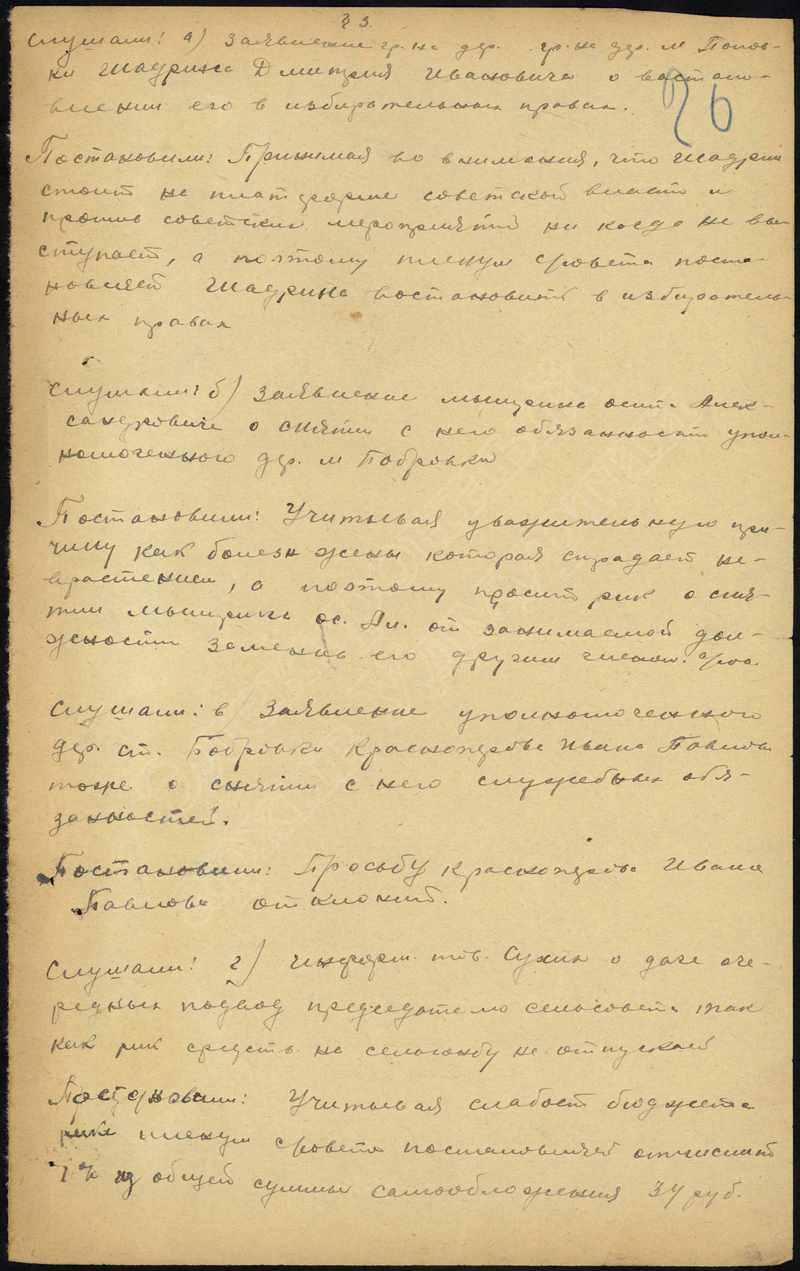 § 3.
26
Слушали: а) Заявление гр-на дер. гр-на дер. м Попов-
ки Шадрина Дмитрия Ивановича о востано-
влении его в избирательных правах.
Постановили: Принимая во внимания, что Шадрин
стоит на платформе советской власти и
против советских мероприятий ни когда не вы
ступает, а поэтому пленум с/совета поста-
новляет Шадрина востановить в избиратель-
ных правах
Слушали: б) Заявление Мышкина Осипа Алек-
сандровича о снятии с него обязанности упол-
номоченного дер. м Бобровки
Постановили: Учитывая уважительную при-
чину как болезн жены которая страдает не-
врастенией, а поэтому просит рик о сня-
тии Мышкина Ос. Ал. от занимаемой дол-
жности заменив его другим членом с/сов.
Слушали: в Заявление уполномоченного
дер. ст. Бобровки Красноперова Ивана Павлов.
тоже о снятии с него служебных обя-
занностей.
Постановили: Просьбу Красноперова Ивана
Павлова отклонит.
Слушали: г) Информ. тов. Сухих о даче оче-
редных подвод председателю сельсовета так
как рик средств на сельсовет не отпускает
Постановили: Учитывая слабост бюджета
рика пленум с/совета постановляет отчислит
% из общей суммы самообложения 34 руб.